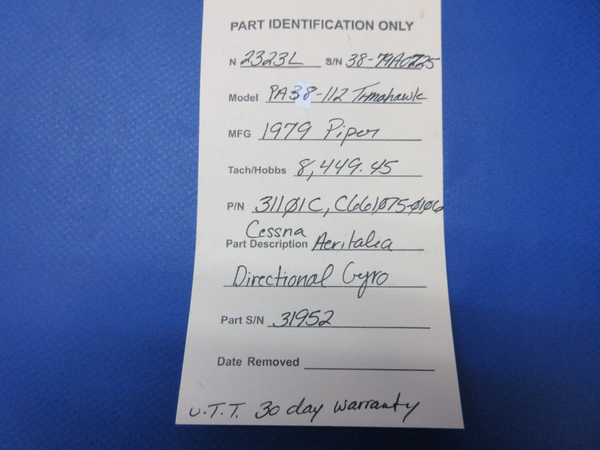 PART IDENTIFICATION ONLY
N 2323L S/N 38-79A0725
Model PA38-112 Tomahawk
MFG 1979 Piper
Tach/Hobbs 8,449.45
P/N 31101C, C661075-0106
Cessna
Part Description Aeritalia
Directional Gyro
Part S/N 31952
Date Removed
U.T.T. 30 day warranty